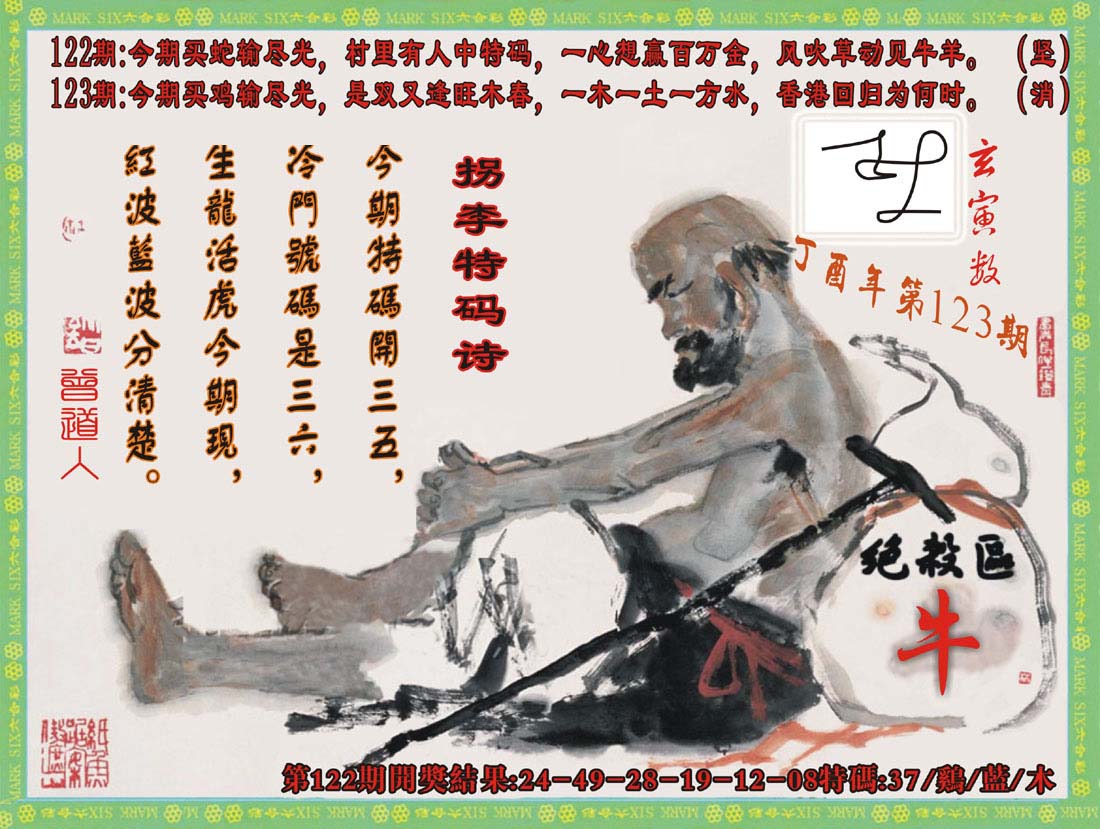 MARK SIX六合彩 MARK SIX六合彩 MARK SIX六合彩 MARK SIX六合彩
122期:今期买蛇输尽光，村里有人中特码，一心想赢百万金，风吹草动见牛羊。（坚）
123期:今期买鸡输尽光，是双又逢旺木春，一木一土一方水，香港回归为何时。（消）
玄寅数
丁酉年第123期
拐李特码诗
今期特碼開三五，
冷門號碼是三六，
生龍活虎今期現，
紅波藍波分清楚。
曾道人
绝殺區
牛
第122期開獎結果:24-49-28-19-12-08特碼:37/鷄/藍/木